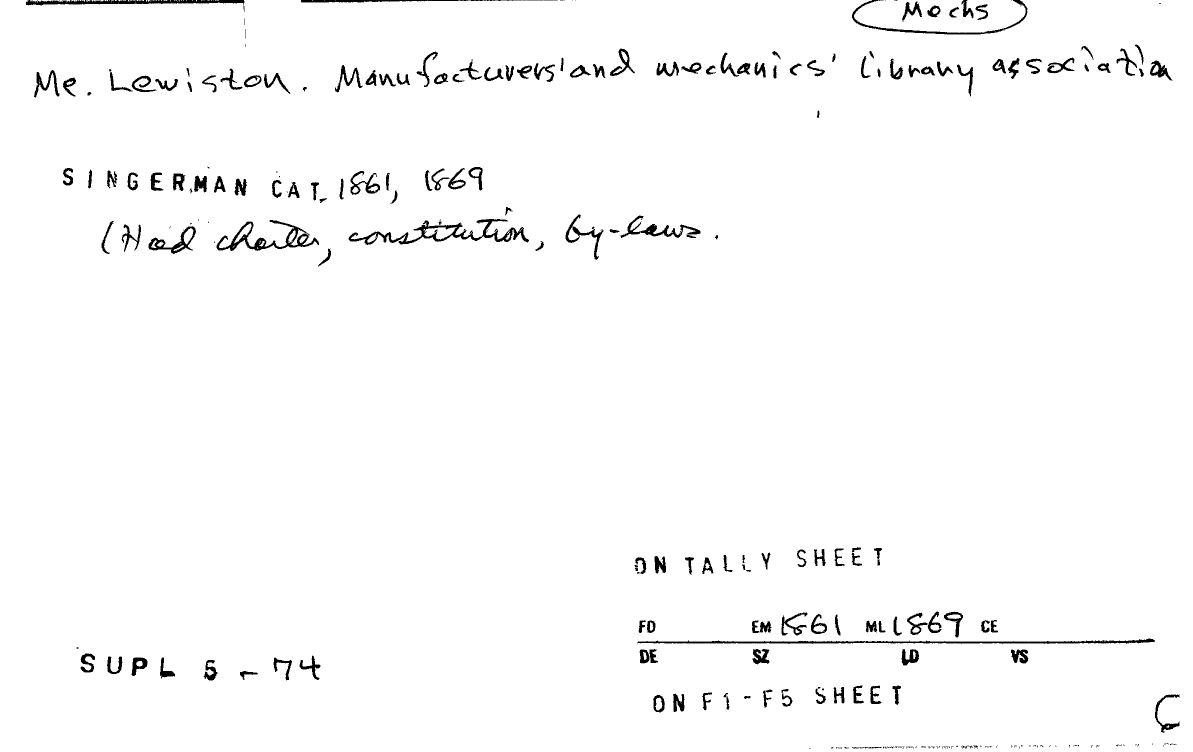 Mechs
Me. Lewiston. Manufacturers' and mechanics' library association
SINGERMAN CAT. 1861, 1869
(Had charter, constitution, by-laws.
ON TALLY SHEET
FD EM 1861 ML 1869 CE
DE SZ LD VS
SUPL 5-74
ON F1-F5 SHEET
C